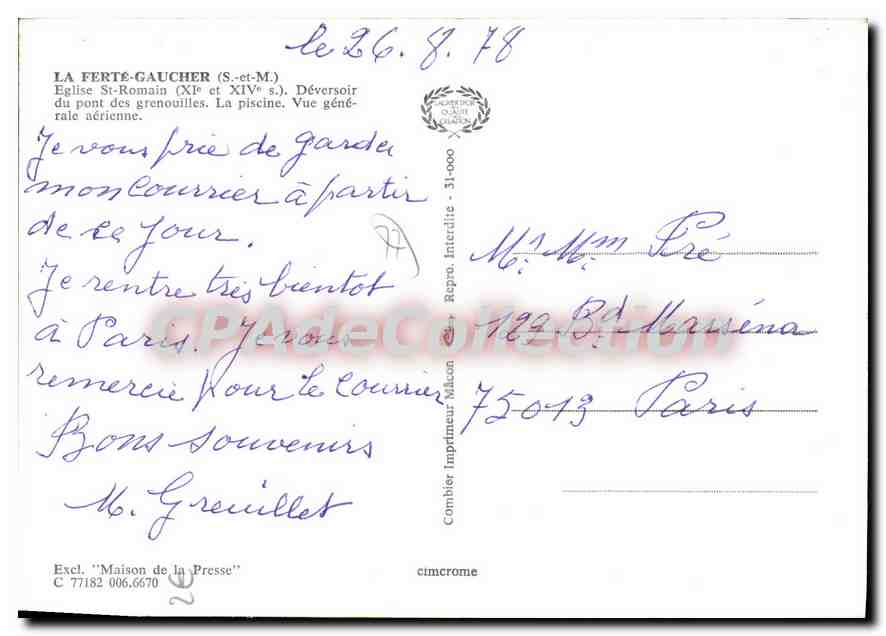 le 26.8.78
LA FERTÉ-GAUCHER (S.-et-M.)
Eglise St-Romain (XIe et XIVe s.). Déversoir
du pont des grenouilles. La piscine. Vue géné-
rale aérienne.
Je vous prie de garder
mon courrier à partir
de ce jour.
Je rentre très bientot
à Paris. Je vous
remercie pour le courrier
Bons souvenirs
M. Greuillet
Excl. "Maison de la Presse"
C 77182 006.6670
2€
77
Combier Imprimeur Mâcon Repro. Interdite - 31-000
cimcrome
Mr. Mm. Pré
122 Bd. Masséna
75013 Paris
CPAdeCollection